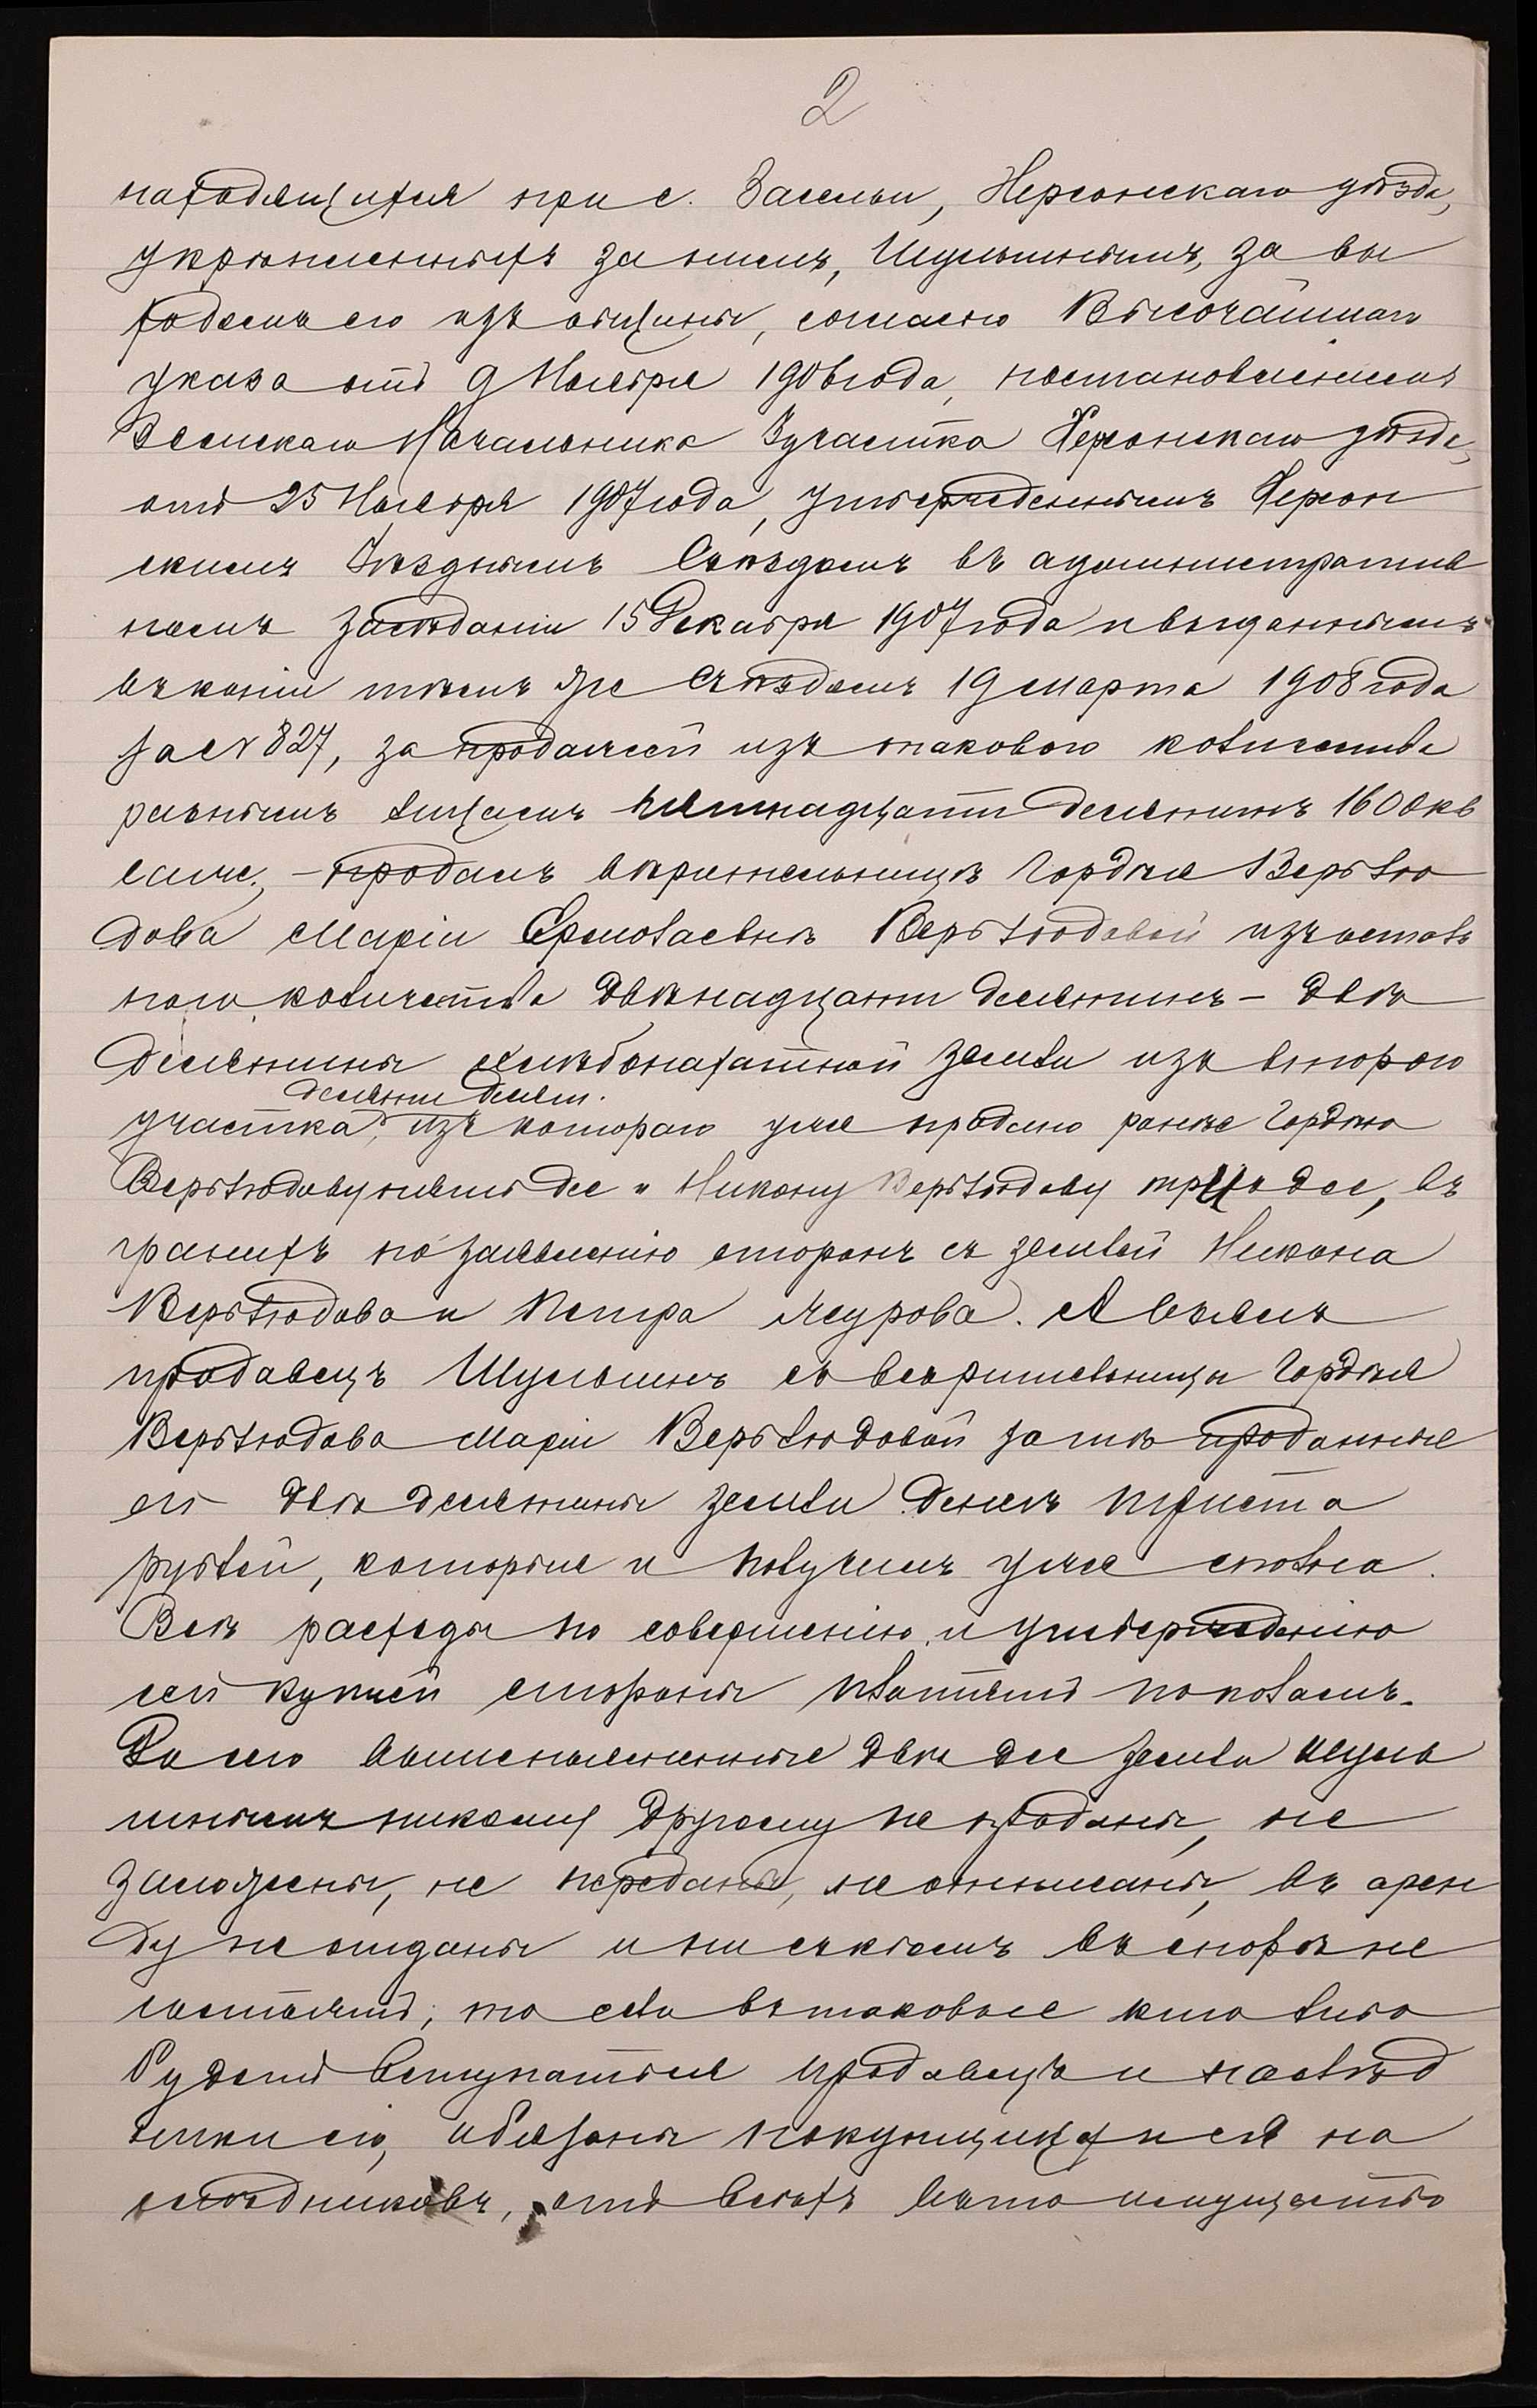 2
находящихся при с. Засельи, Херсонскаго уѣзда,
укрѣпленныхъ за нимъ, Шульгинымъ, за вы
ходомъ его изъ общины, согласно Высочайшаго
указа отъ 9 Ноября 1906 года, постановленіемъ
Земскаго Начальника 3 участка Херсонскаго уѣзда,
отъ 25 Ноября 1907 года, утвержденнымъ Херсон
скимъ Уѣзднымъ Съѣздомъ въ административ
номъ засѣданіи 15 Декабря 1907 года и выданнымъ
въ копіи тѣмъ же Съѣздомъ 19 марта 1908 года
за № 827, за продажей изъ таковаго количества
разнымъ лицамъ пятнадцати десятинъ 1600 кв
саж., – продалъ вѣрительницѣ Гордѣя Верблю
дова Маріи Ермолаевнѣ Верблюдовой изъ осталь
ного количества двѣнадцати десятинъ – двѣ
десятины хлѣбопахатной земли изъ второго
десятидесят.
участка, изъ котораго уже продано ранѣе Гордѣю
Верблюдову пять дес и Никону Верблюдову три дес, въ
границѣ по заявленію сторонъ съ землей Никона
Верблюдова и Петра Чеурова. А взялъ
продавецъ Шульгинъ съ вѣрительницы Гордѣя
Верблюдова Маріи Верблюдовой за тѣ проданныя
ей двѣ десятины земли денегъ триста
рублей, которые и получилъ уже сполна.
Всѣ расходы по совершенію и утвержденію
сей купчей стороны платятъ пополамъ.
До сего вышеписанныя двѣ дес земли Шуль
гинымъ никому другому не проданы, не
заложены, не переданы, не отписаны, въ арен
ду не отданы и ни съ кѣмъ въ спорѣ не
состоятъ; то если въ таковые кто либо
будетъ вступаться продавецъ и наслѣд
ники его, обязаны покупщицу и ея на
слѣдниковъ, отъ всѣхъ въ то имущество